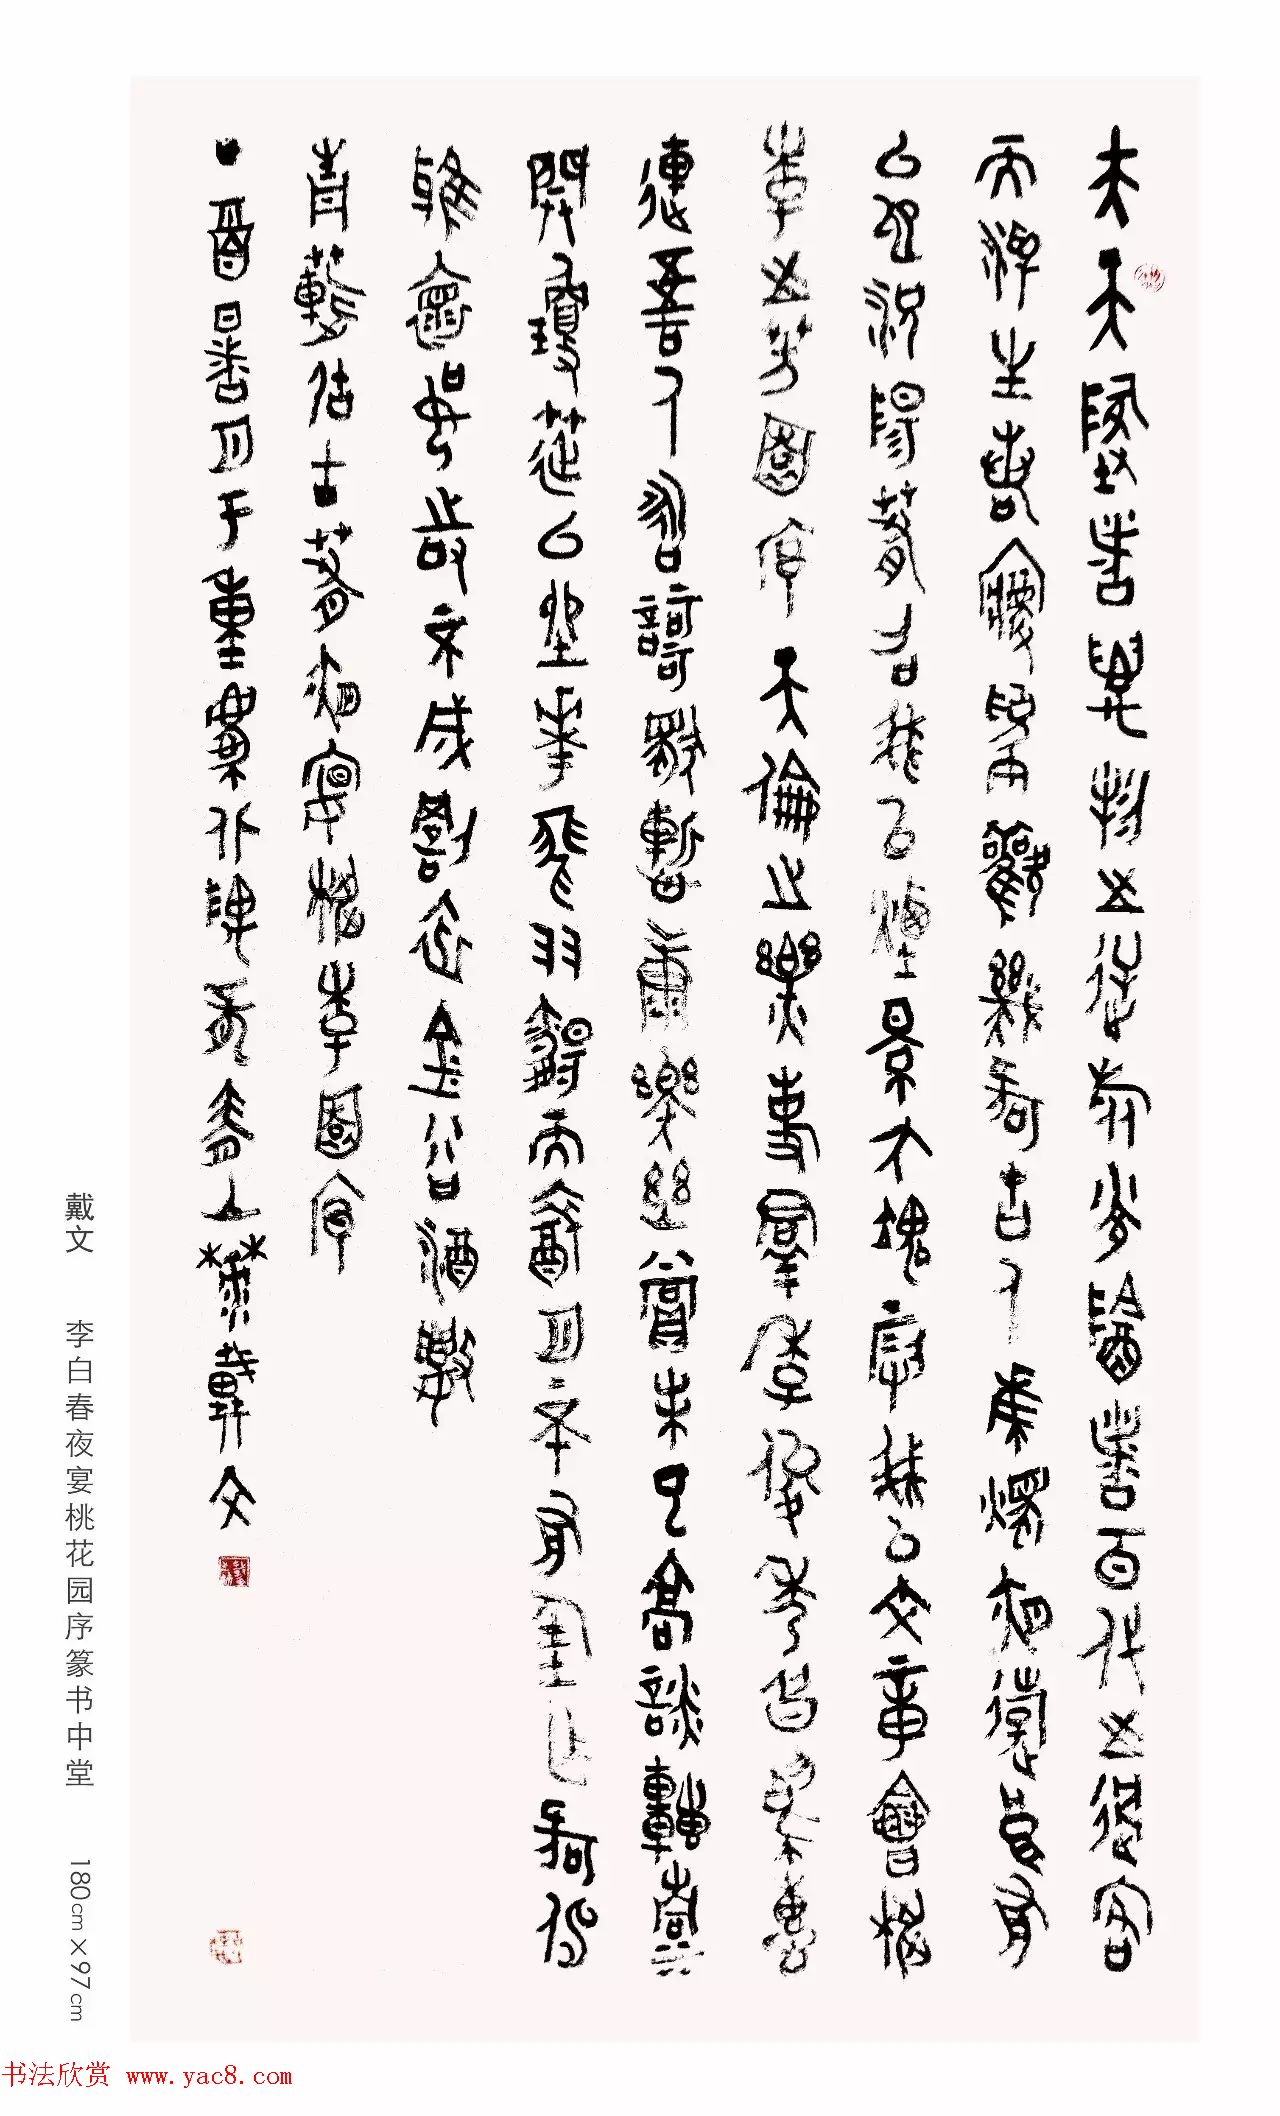 夫天地者萬物之逆旅光陰者百代之過客
而浮生若夢為歡幾何古人秉燭夜遊良有
以也況陽春召我以煙景大塊假我以文章會桃
李之芳園序天倫之樂事群季俊秀皆為惠
連吾人詠歌獨慚康樂幽賞未已高談轉清
開瓊筵以坐花飛羽觴而醉月不有佳作何伸
雅懷如詩不成罰依金谷酒數
青蓮居士春夜宴桃李園序
丁酉 月于重慶 戴文
戴文 李白春夜宴桃花园序篆书中堂 180cm×97cm
书法欣赏 www.yac8.com